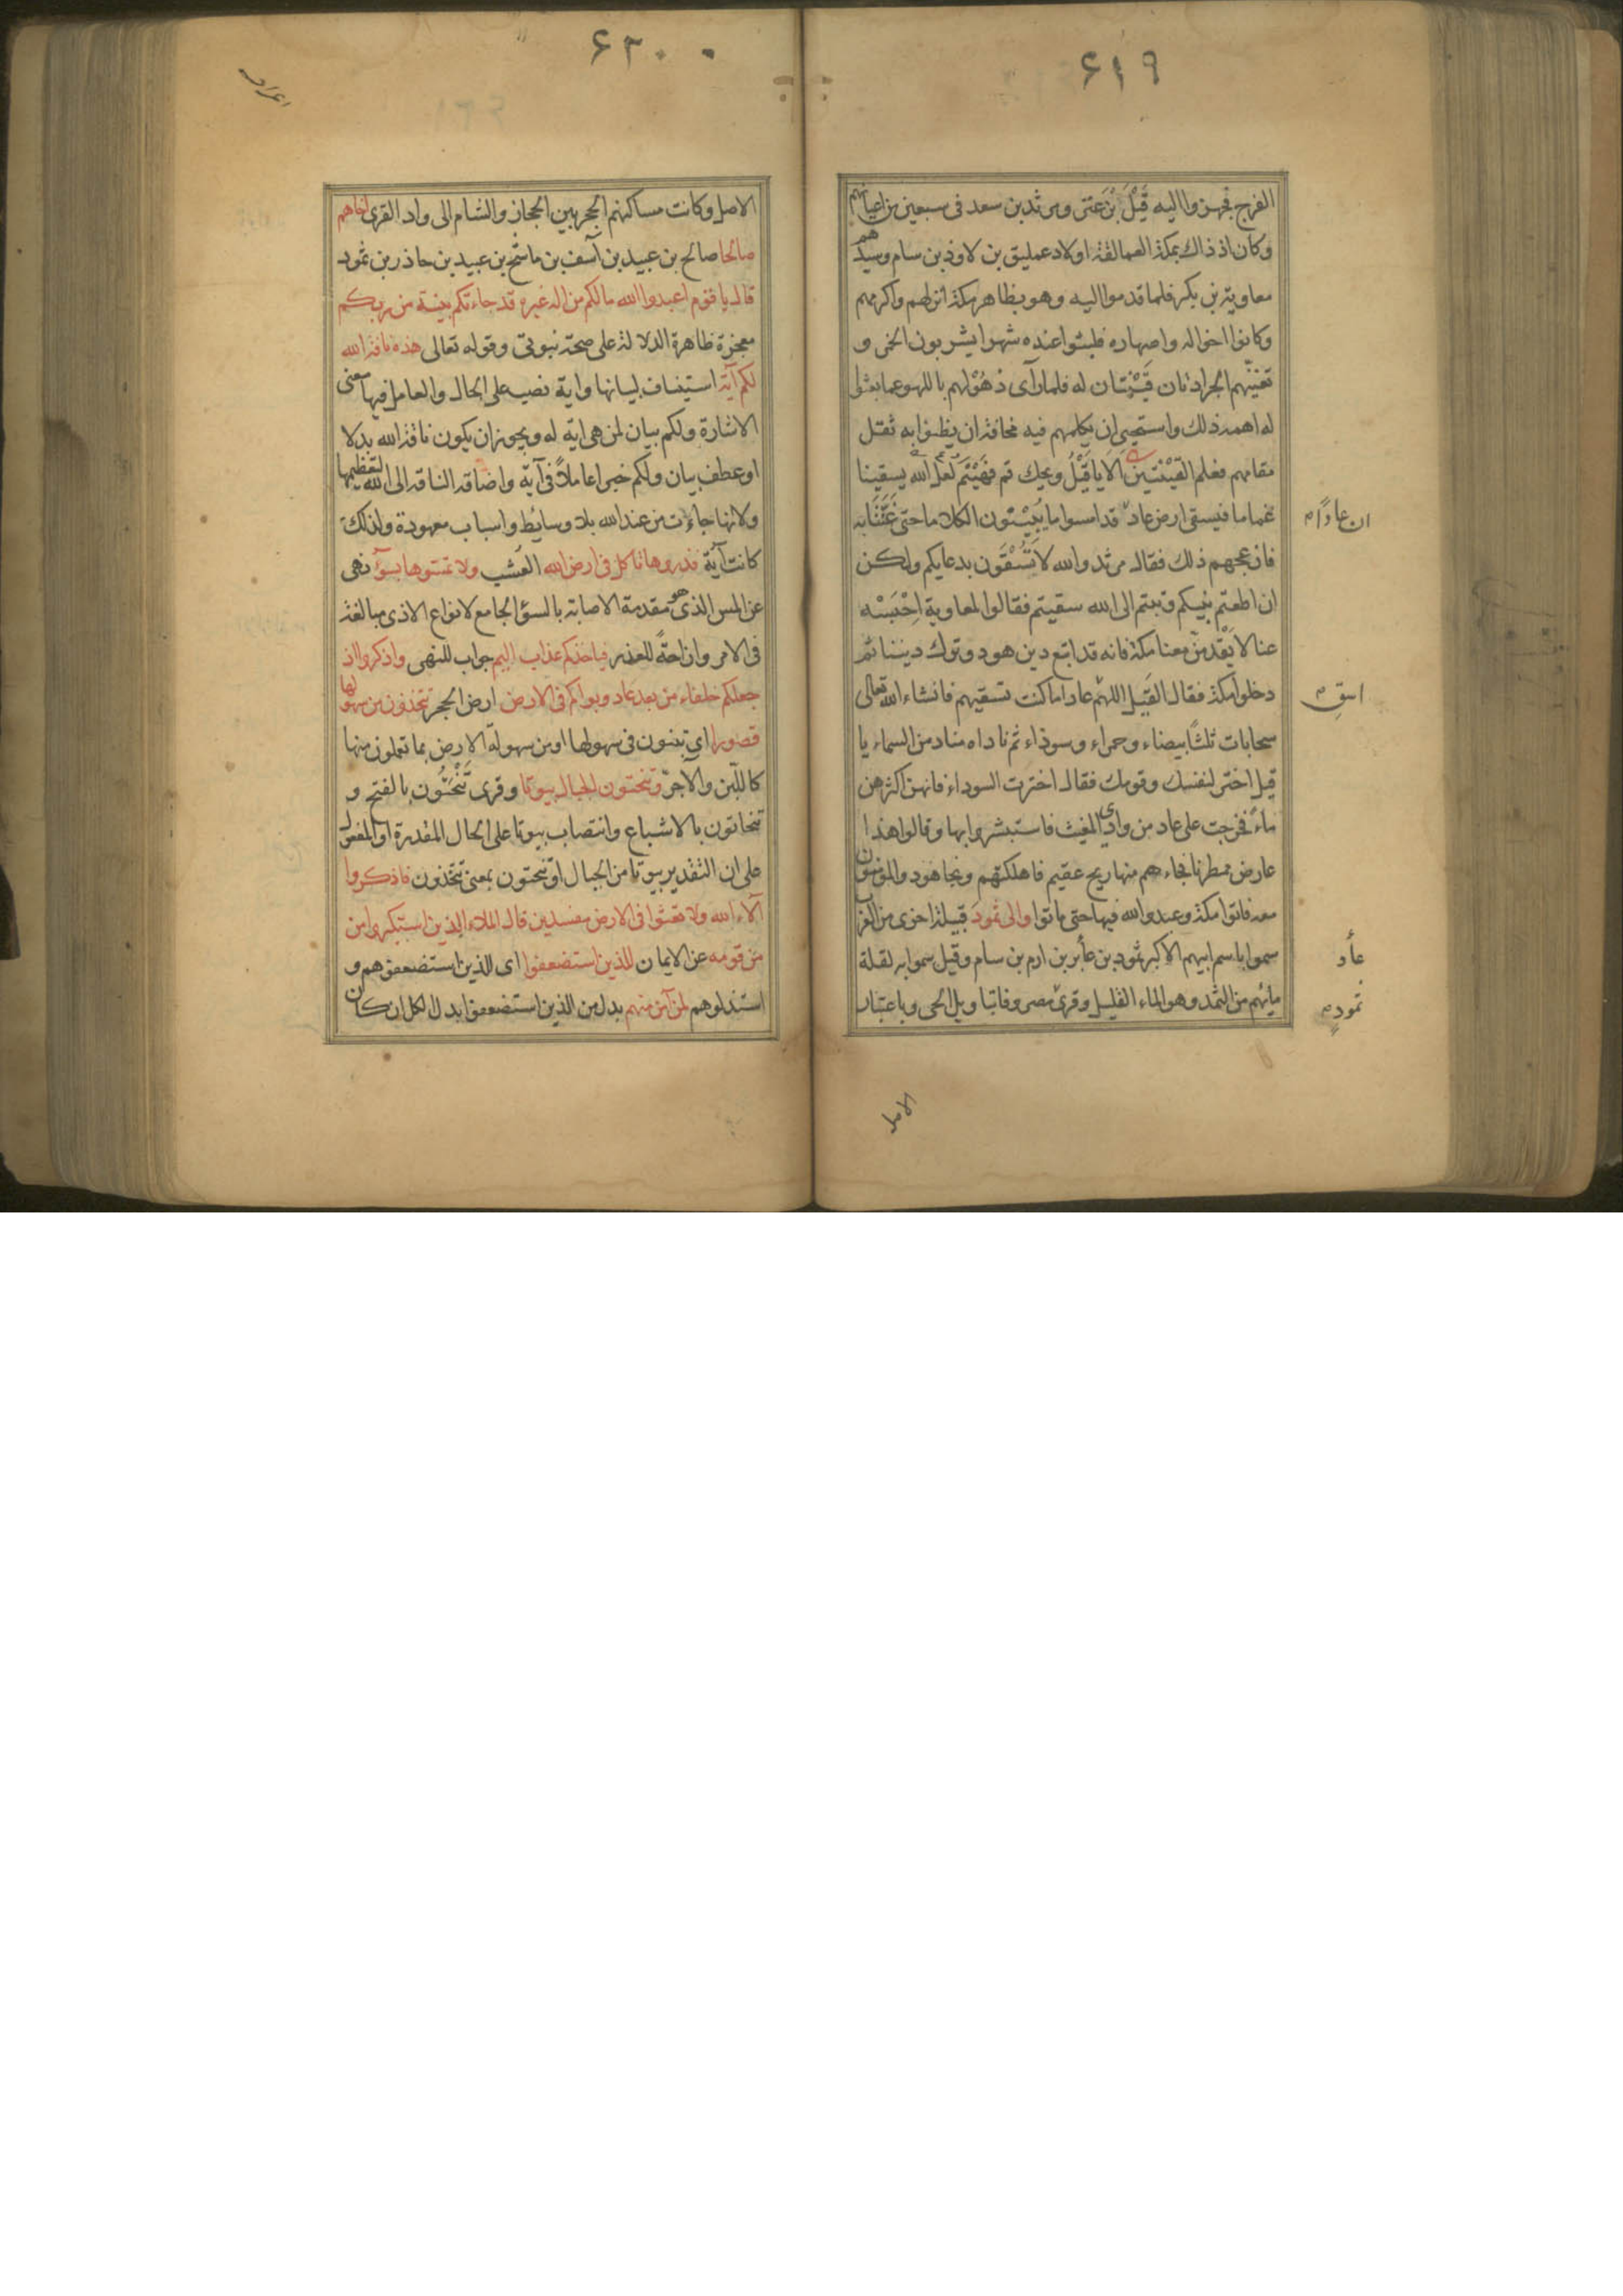 ۶۱۹
الفرج فجهزوا اليه قَيْلَ بْنَ عَنَز ومرثد بن سعد فى سبعين من اعيانهم
وكان اذ ذاك بمكة العمالقة اولاد عمليق بن لاوذ بن سام وسيدهم
معاوية بن بكر فلما قدموا اليه وهو بظاهر مكة انزلهم واكرمهم
وكانوا اخواله واصهاره فلبثوا عنده شهرا يشربون الخمر و
تغنيهم الجرادتان قَيْنتان له فلما رآى ذهُوْلهم باللهو عما بعثوا
له اهمه ذلك واستحيى ان يكلمهم فيه مخافة ان يظنوا به ثقل
مقامهم فعلم القَيْنَتين الا يا قَيْلُ ويحك قم فهَيْنَمْ لعلَّ الله يسقينا
غماما فيسقى ارض عاد قد امسوا ما يُبِيْنُون الكلاما حتى غنَّتَا به
ان عادًا
فازعجهم ذلك فقال مرثد والله لا تُسْقَون بدعايكم ولكن
ان اطعتم نبيكم وتبتم الى الله سقيتم فقالوا لمعاوية اِحْبِسْه
عنا لا يَقْدمنّ معنا مكة فانه قد اتبع دين هود وترك ديننا ثم
دخلوا مكة فقال القَيل اللهم عادا ما كنت تسقيهم فانشاء الله تعالى
اسقِ
سحابات ثلثًا بيضاء وحمراء وسوداء ثم ناداه مناد من السماء يا
قيل اختر لنفسك وقومك فقال اخترت السوداء فانهن اكثرهن
ماءً فخرجت على عاد من وادى المغيث فاستبشروا بها وقالوا هذا
عارض ممطرنا فجاءهم منها ريح عقيم فاهلكتهم ونجا هود والمؤمنون
معه فاتوا مكة وعبدوا الله فيها حتى ماتوا والى ثمود قبيلة اخرى من العرب
سموا باسم ابيهم الاكبر ثمود بن عابر بن ارم بن سام وقيل سموا به لقلة
عاد
مائهم من الثمد وهو الماء القليل وقرئ مصروفا بتاويل الحى وباعتبار
ثمودٍ
۶۲۰
الاصل وكانت مساكنهم الحجر بين الحجاز والشام الى واد القرى اخاهم
صالحا صالح بن عبيد بن آسف بن ماشخ بن عبيد بن حاذر بن ثمود
قال يا قوم اعبدوا الله مالكم من اله غيره قد جاءتكم بينة من ربكم
معجزة ظاهرة الدلالة على صحة نبوتى وقوله تعالى هذه ناقة الله
لكم آية استيناف لبيانها واية نصب على الحال والعامل فيها معنى
الاشارة ولكم بيان لمن هى اية له ويجوز ان يكون ناقة الله بدلا
او عطف بيان ولكم خبرا عاملاً فى آية واضافة الناقه الى الله لتعظيمها
ولانها جاءت من عند الله بلا وسايط واسباب معهودة ولذلك
كانت آية فذروها تاكل فى ارض الله العُشب ولا تمسوها بسؤ نهى
عن المس الذى هو مقدمة الاصابة بالسؤ الجامع لانواع الاذى مبالغة
فى الامر وازاحةً للعذر فياخذكم عذاب اليم جواب للنهى واذكروا اذ
جعلكم خلفاء من بعد عاد وبواكم فى الارض ارض الحجر تتخذون من سهولها
قصورا اى تبنون فى سهولها او من سهولة الارض بما تعملون منها
كاللّبن والاجرّ وتنحتون الجبال بيوتا وقرى تَنْحَتُون بالفتح و
تنحاتون بالاشباع وانتصاب بيوتا على الحال المقدرة او المفعول
على ان التقدير بيوتا من الجبال او تنحتون بمعنى تتخذون فاذكروا
آلاء الله ولا تعثوا فى الارض مفسدين قال الملاء الذين استكبروا من
من قومه عن الايمان للذين استضعفوا اى للذين استضعفوهم و
استذلوهم لمن آمن منهم بدل من الذين استضعفوا بدل الكل ان كان